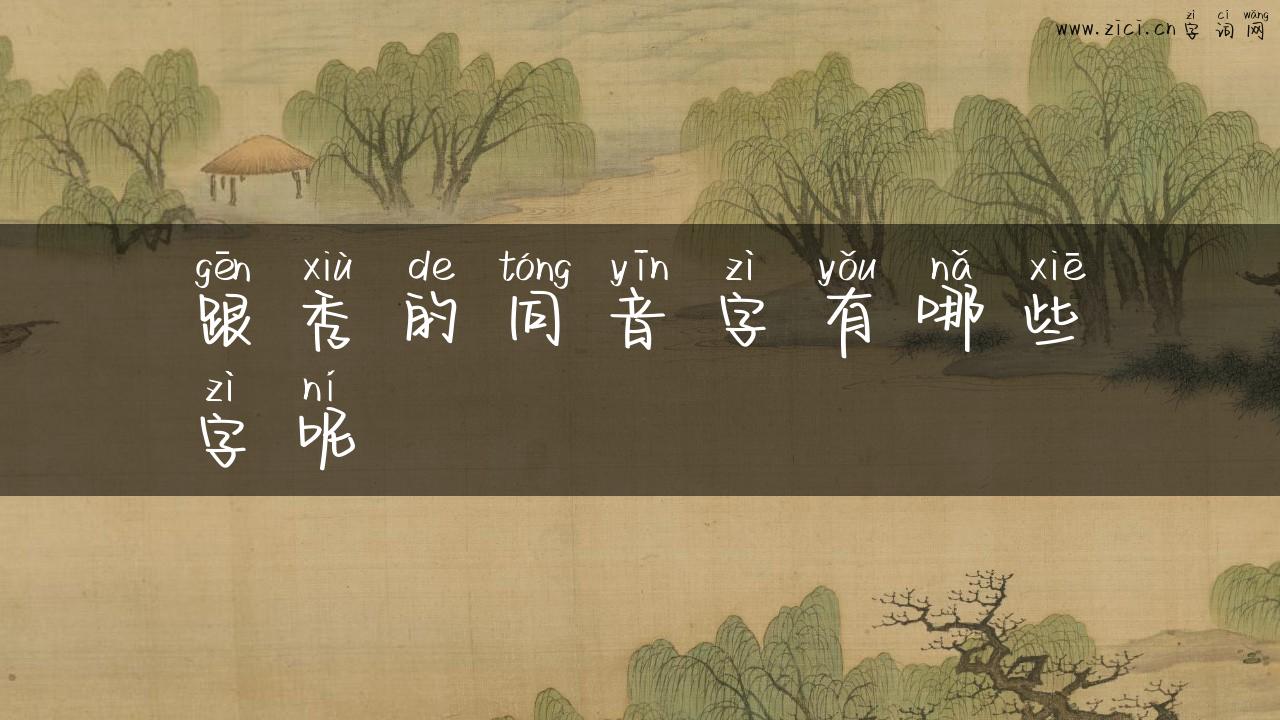 zì cí wǎng
www.zici.cn 字 词 网
gēn xiù de tóng yīn zì yǒu nǎ xiē
跟 秀 的 同 音 字 有 哪 些
zì ní
字 呢